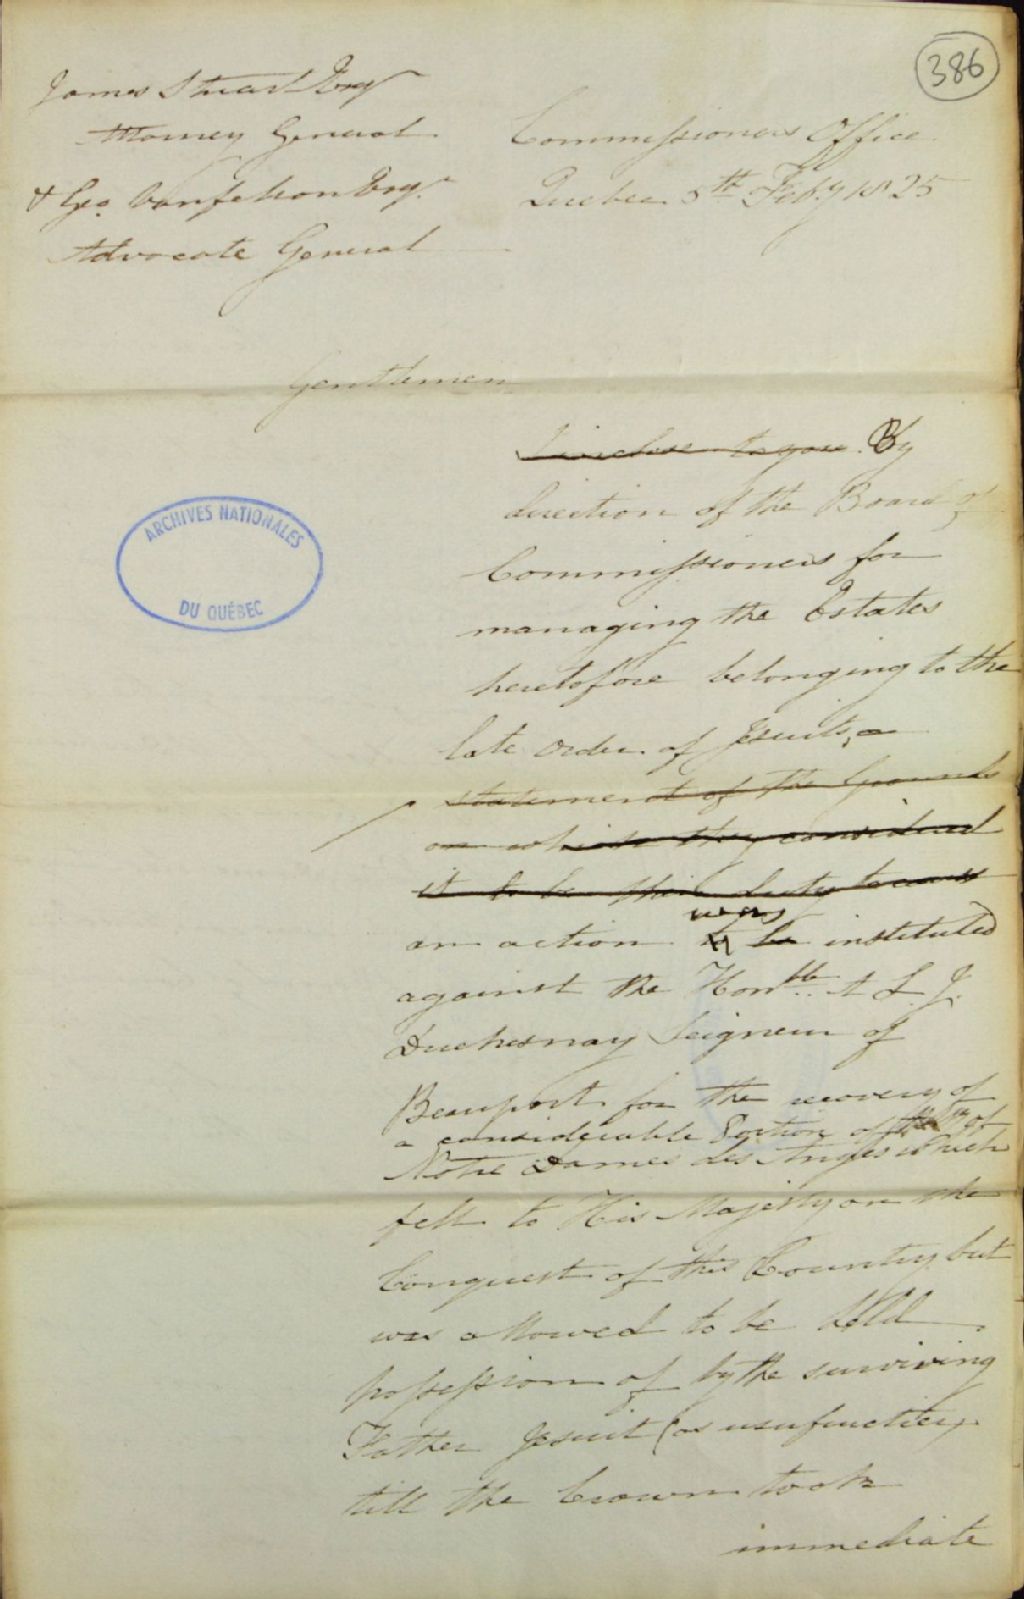 386
James Stuart Esqr
Attorney General
& Geo. Vanfelson Esqr.
Advocate General
Commissioners Office
Quebec 5th Feby 1825
Gentlemen
I inclose to you By
direction of the Board of
Commissioners for
managing the Estates
heretofore belonging to the
late Order of Jesuits, a
statement of the Grounds
on which they considered
it to be their duty to cause
was
an action to be instituted
against the Honble. A. L. J.
Duchesnay Seigneur of
Beauport for the recovery of
a considerable Portion of the of
Notre Dames des Anges which
fell to His Majesty on the
Conquest of this Country but
was allowed to be held
possession of by the surviving
Father Jesuit (as usufructier)
till the Crown took
immediate
ARCHIVES NATIONALES
DU QUÉBEC